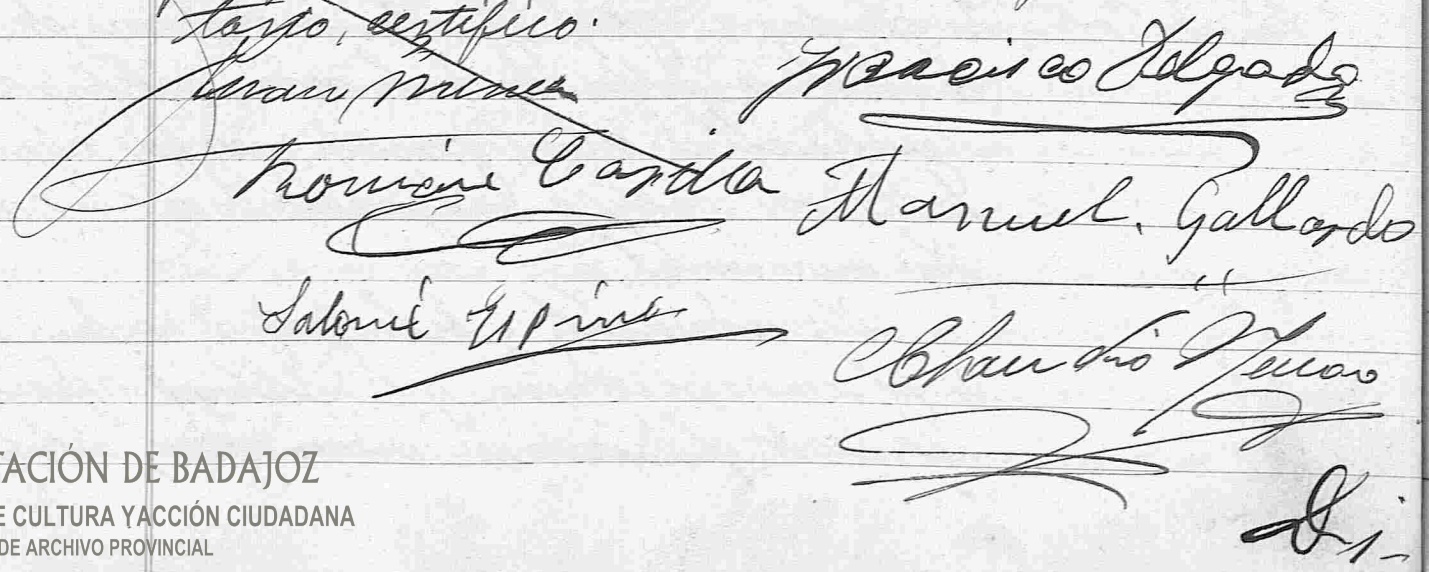 tario, certifico.
Juan
Francisco Delgado
Román Casilla
Manuel. Gallardo
Salomé Espino
Claudio
TACIÓN DE BADAJOZ
E CULTURA Y ACCIÓN CIUDADANA
DE ARCHIVO PROVINCIAL